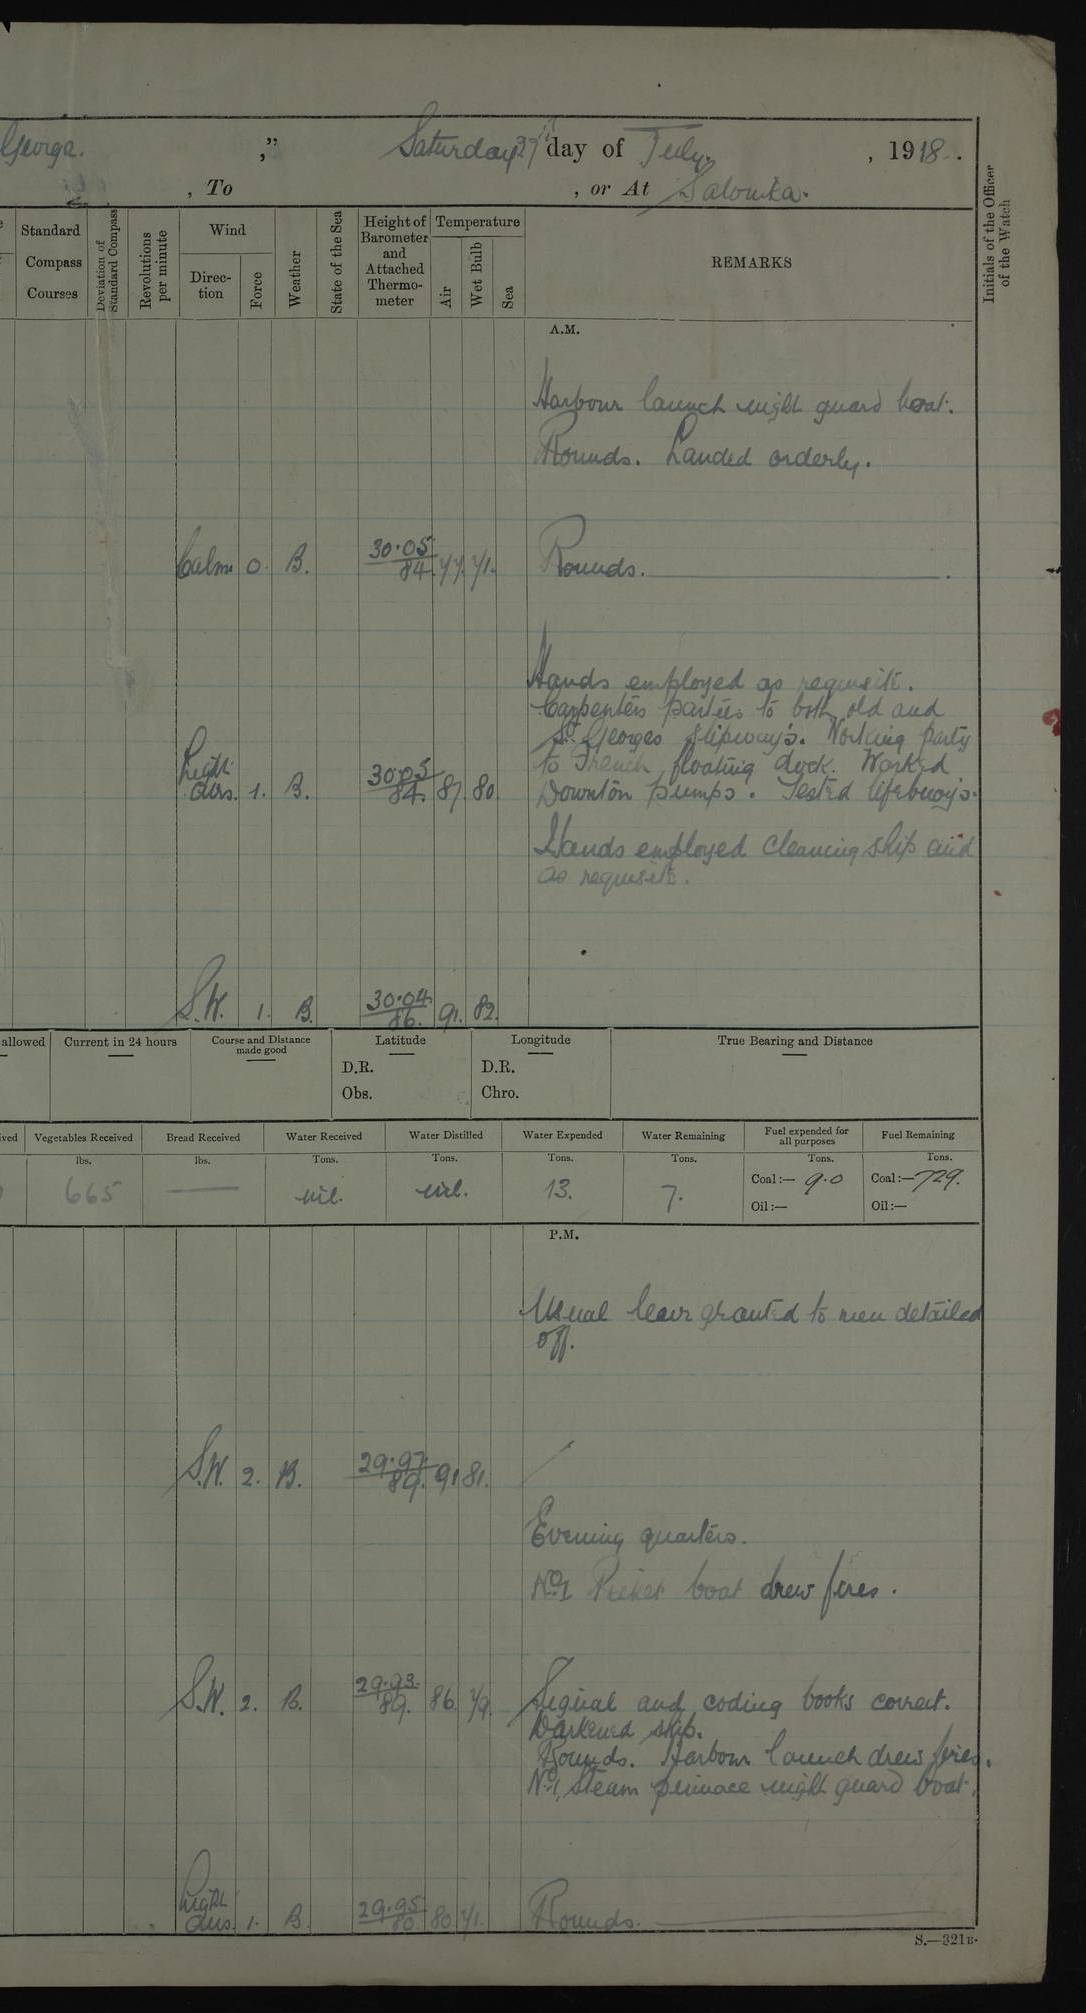 George. ," Saturday 27th day of July, 1918.
, To , or At Salonika.
Standard Compass Courses
Deviation of Standard Compass
Revolutions per minute
Wind
Direction
Force
Weather
State of the Sea
Height of Barometer and Attached Thermometer
Temperature
Air
Wet Bulb
Sea
REMARKS
Initials of the Officer of the Watch
A.M.
Harbour launch night guard boat.
Rounds. Landed orderly.
Calm 0 B. 30.05 84. 77. 71. Rounds.
Hands employed as requisite.
Carpenters parties to both old and
St. Georges slipways. Working party
to French floating dock. Worked
Light airs. 1. B. 30.05 84. 87. 80. Downton pumps. Tested lifebuoys.
Hands employed cleaning ship and
as requisite.
S.W. 1. B. 30.04 86. 91. 82.
allowed Current in 24 hours Course and Distance made good Latitude Longitude True Bearing and Distance
D.R. D.R.
Obs. Chro.
Vegetables Received Bread Received Water Received Water Distilled Water Expended Water Remaining Fuel expended for all purposes Fuel Remaining
lbs. lbs. Tons. Tons. Tons. Tons. Tons. Tons.
665 — nil. nil. 13. 7. Coal:— 9.0 Coal:— 729.
Oil:— Oil:—
P.M.
Usual leave granted to men detailed
off.
S.W. 2. B. 29.97. 89. 91 81.
Evening quarters.
No. 1 Picket boat drew fires.
S.W. 2. B. 29.93. 89. 86. 79. Signal and coding books correct.
Darkened ship.
Rounds. Harbour launch drew fires.
No. 1 Steam pinnace night guard boat.
Light airs. 1. B. 29.95 80. 80 71. Rounds.
S.—321B.